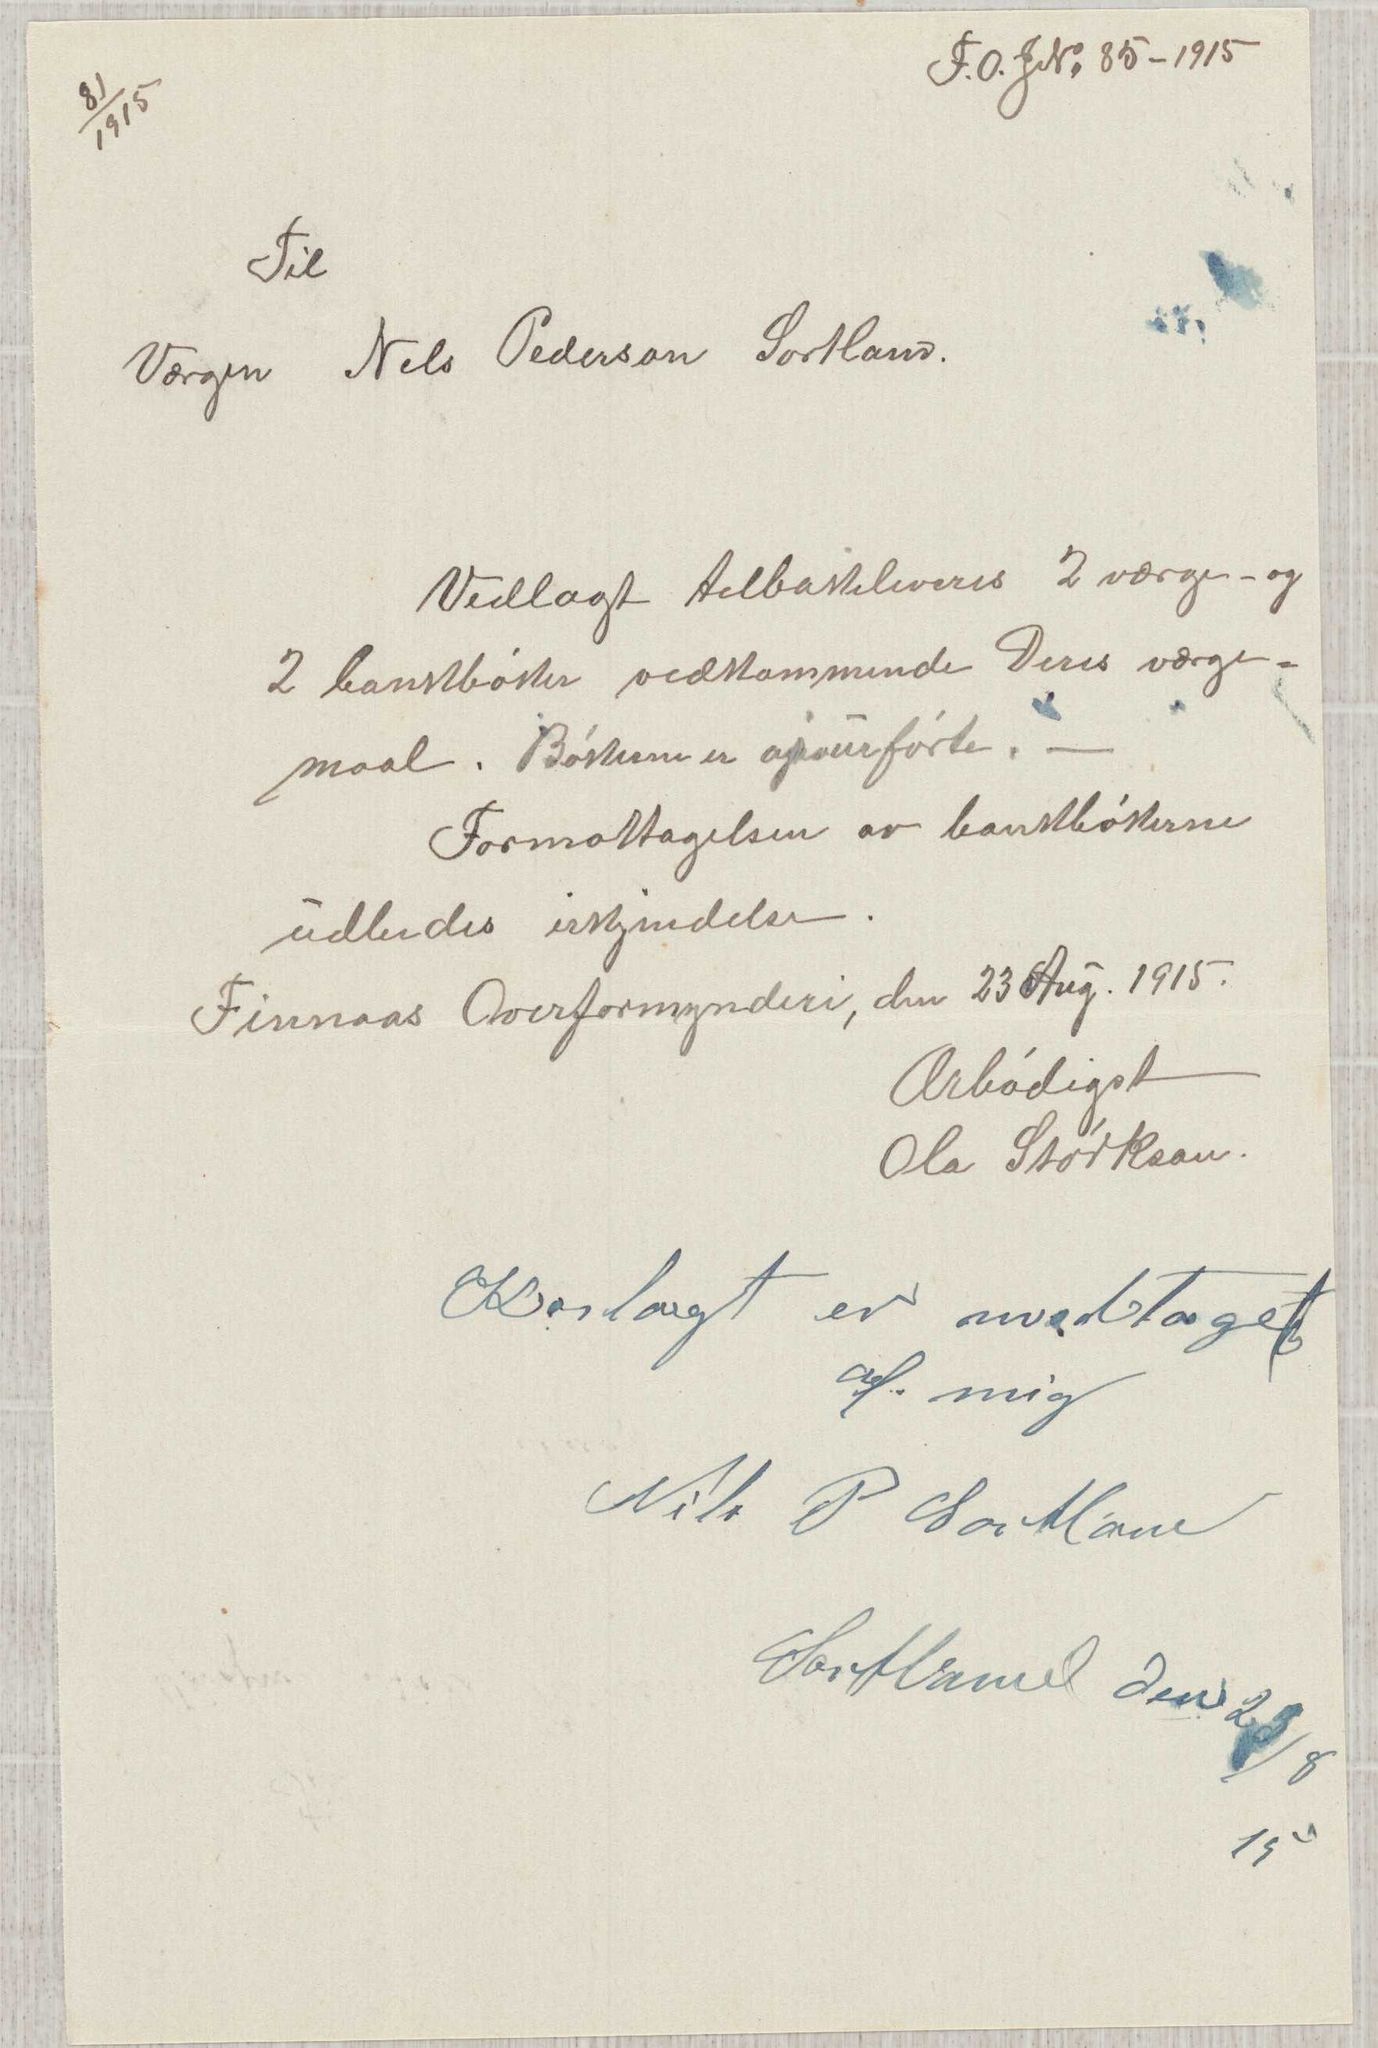 81/1915
F.O. JNo. 85-1915
Til
Værgen Nels Pederson Sortland.
Vedlagt tilbakeleveres 2 værge- og
2 bankbøker vedkommende Deres værge-
maal. Bøkerne er ajourførte. —
For mottagelsen av bankbøkerne
udbedes erkjendelse.
Finnaas Overformynderi, den 23 Aug. 1915.
Ærbødigst
Ola Størkson.
er modtaget
af mig
Nils P Sortland
Sortland den 23/8
15